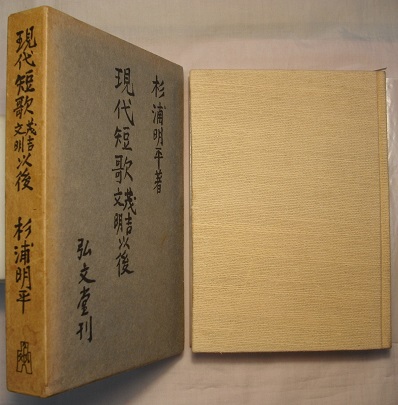 杉浦明平著
現代短歌茂吉文明以後
弘文堂刊
現代短歌茂吉文明以後
杉浦明平